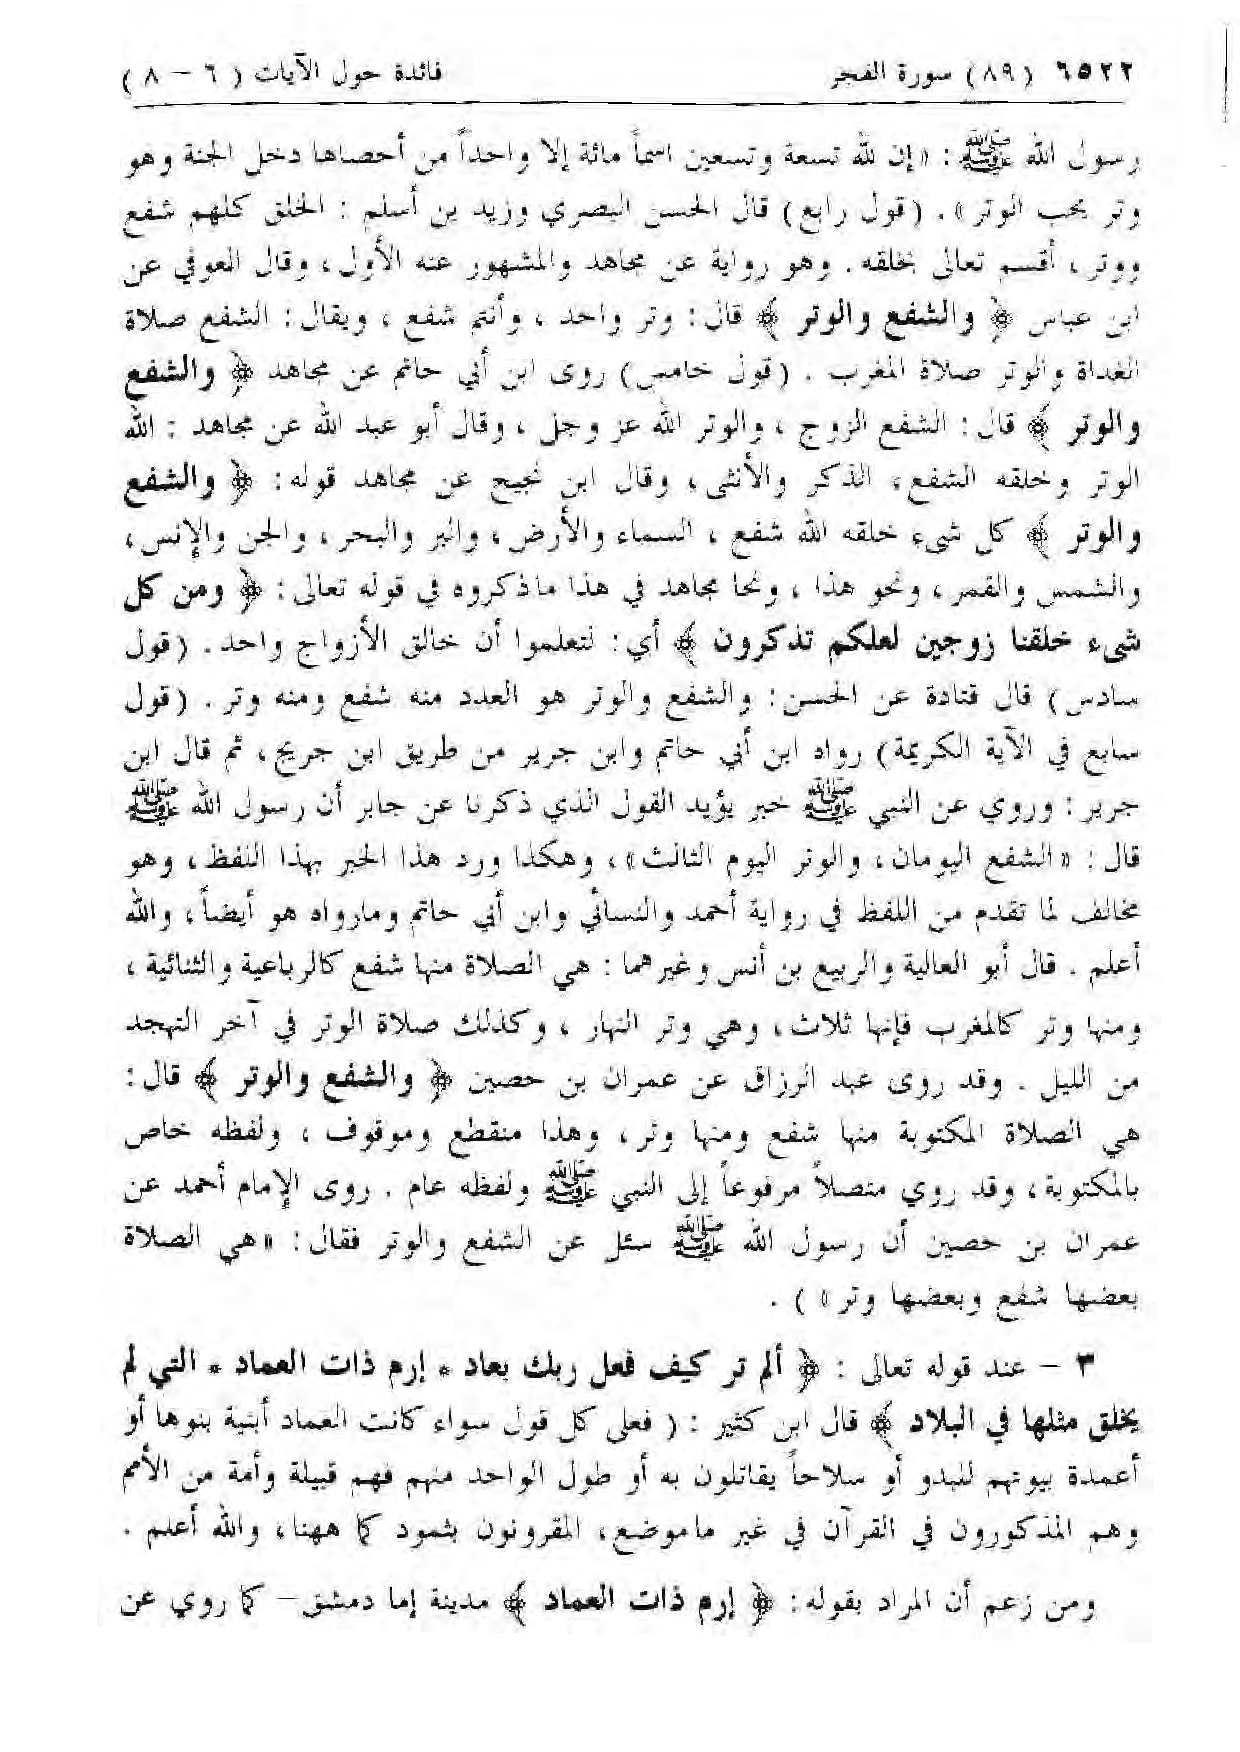 ٦٥٢٢ (٨٩) سورة الفجر فائدة حول الآيات (٦ – ٨)
رسول الله ﷺ : «إن لله تسعة وتسعين اسماً مائة إلا واحداً من أحصاها دخل الجنة وهو
وتر يحب الوتر» . (قول رابع) قال الحسن البصري وزيد بن أسلم : الخلق كلهم شفع
ووتر ، أقسم تعالى بخلقه . وهو رواية عن مجاهد والمشهور عنه الأول ، وقال العوفي عن
ابن عباس ﴿ والشفع والوتر ﴾ قال : وتر واحد ، وأنتم شفع ، ويقال : الشفع صلاة
الغداة والوتر صلاة المغرب . (قول خامس) روى ابن أبي حاتم عن مجاهد ﴿ والشفع
والوتر ﴾ قال : الشفع الزوج ، والوتر الله عز وجل ، وقال أبو عبد الله عن مجاهد : الله
الوتر وخلقه الشفع ، الذكر والأنثى ، وقال ابن نجيح عن مجاهد قوله : ﴿ والشفع
والوتر ﴾ كل شيء خلقه الله شفع ، السماء والأرض ، والبر والبحر ، والجن والإنس ،
والشمس والقمر ، ونحو هذا ، ونحا مجاهد في هذا ماذكروه في قوله تعالى : ﴿ ومن كل
شيء خلقنا زوجين لعلكم تذكرون ﴾ أي : لتعلموا أن خالق الأزواج واحد . (قول
سادس) قال قتادة عن الحسن : والشفع والوتر هو العدد منه شفع ومنه وتر . (قول
سابع في الآية الكريمة) رواه ابن أبي حاتم وابن جرير من طريق ابن جريج ، ثم قال ابن
جرير : وروي عن النبي ﷺ خبر يؤيد القول الذي ذكرنا عن جابر أن رسول الله ﷺ
قال : «الشفع اليومان ، والوتر اليوم الثالث» ، وهكذا ورد هذا الخبر بهذا اللفظ ، وهو
مخالف لما تقدم من اللفظ في رواية أحمد والنسائي وابن أبي حاتم ومارواه هو أيضاً ، والله
أعلم . قال أبو العالية والربيع بن أنس وغيرهما : هي الصلاة منها شفع كالرباعية والثنائية ،
ومنها وتر كالمغرب فإنها ثلاث ، وهي وتر النهار ، وكذلك صلاة الوتر في آخر التهجد
من الليل . وقد روى عبد الرزاق عن عمران بن حصين ﴿ والشفع والوتر ﴾ قال :
هي الصلاة المكتوبة منها شفع ومنها وتر ، وهذا منقطع وموقوف ، ولفظه خاص
بالمكتوبة ، وقد روي متصلاً مرفوعاً إلى النبي ﷺ ولفظه عام . روى الإمام أحمد عن
عمران بن حصين أن رسول الله ﷺ سئل عن الشفع والوتر فقال : «هي الصلاة
بعضها شفع وبعضها وتر» ) .
٣ – عند قوله تعالى : ﴿ ألم تر كيف فعل ربك بعاد * إرم ذات العماد * التي لم
يخلق مثلها في البلاد ﴾ قال ابن كثير : ( فعلى كل قول سواء كانت العماد أبنية بنوها أو
أعمدة بيوتهم للبدو أو سلاحاً يقاتلون به أو طول الواحد منهم فهم قبيلة وأمة من الأمم
وهم المذكورون في القرآن في غير ماموضع ، المقرونون بثمود كما ههنا ، والله أعلم .
ومن زعم أن المراد بقوله : ﴿ إرم ذات العماد ﴾ مدينة إما دمشق – كما روي عن